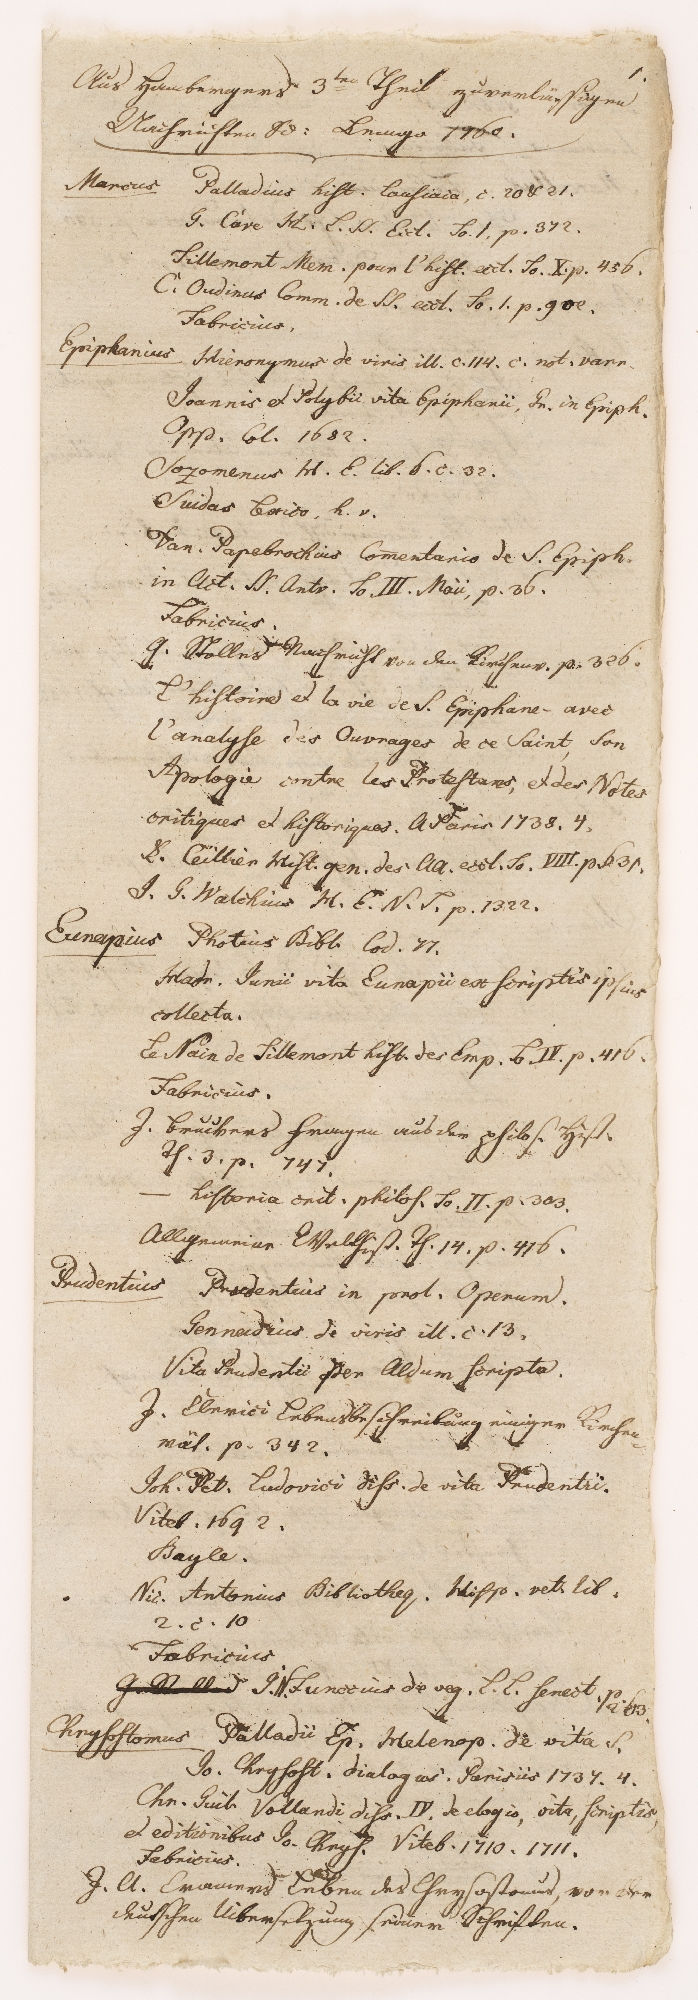 1.
Aus Hambergers 3ten Theil zuverlässigen
Nachrichten &c: Lemgo 1760.
Marcus Palladius hist. lausiaca, c. 20 & 21.
G. Cave H. L. SS. Eccl. To. 1. p. 372.
Tillemont Mem. pour l'hist. eccl. To. X. p. 456.
C. Oudinus Comm. de SS. eccl. To. 1. p. 902.
Fabricius.
Epiphanius Hieronymus de viris ill. c. 114. c. not. varr.
Joannis et Polybii vita Epiphanii, Gr. in Epiph.
Opp. Col. 1682.
Sozomenus H. E. lib. 6. c. 32.
Suidas Lexico, h. v.
Dan. Papebrochius Comentario de S. Epiph.
in Act. SS. Antv. To. III. Maii, p. 36.
Fabricius.
G. Stolles Nachricht von den Kirchenv. p. 326.
L'histoire et la vie de S. Epiphane - avec
l'analyse des Ouvrages de ce Saint, Son
Apologie contre les Protestans, et des Notes
critiques et historiques. A Paris 1738. 4.
R. Ceillier Hist. gen. des Aa. eccl. To. VIII. p. 631.
J. G. Walchius H. E. N. T. p. 1322.
Eunapius Photius Bibl. Cod. 77.
Hadr. Junii vita Eunapii ex scriptis ipsius
collecta.
Le Nain de Tillemont hist. des Emp. T. IV. p. 416.
Fabricius.
J. Bruckers Fragen aus der philos. Hist.
Th. 3. p. 747.
— historia crit. philos. To. II. p. 303.
Allgemeine Welthist. Th. 14. p. 416.
Prudentius Prudentius in prol. Operum.
Gennadius de viris ill. c. 13.
Vita Prudentii per Aldum scripta.
J. Clerici Lebensbeschreibung einiger Kirchen-
vät. p. 342.
Joh. Pet. Ludovici diss. de vita Prudentii.
Viteb. 1692.
Bayle.
Nic. Antonius Bibliotheq. Hisp. vet. lib.
2. c. 10
Fabricius
J. N. Funccius de veg. L. L. senect. p. 63.
Chrysostomus Palladii Ep. Helenop. de vita S.
Jo. Chrysost. dialogus. Parisiis 1737. 4.
Chr. Guil. Vollandi diss. IV. de elogio, vita, scriptis,
et editionibus Jo. Chrys. Viteb. 1710. 1711.
Fabricius.
J. A. Cramers Leben des Chrysostomus, vor der
deutschen Uibersetzung seiner Schriften.